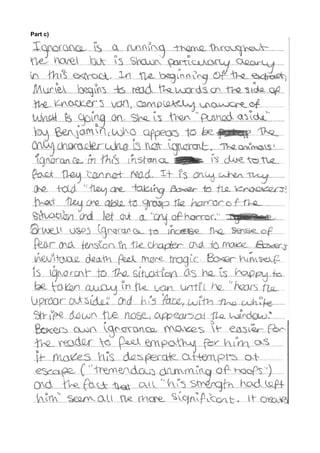 Part c)
Ignorance is a running theme throughout
the novel but is shown particularly clearly
in this extract. In the beginning of the extract,
Muriel begins to read the words on the side of
the knackers van, completely unaware of
what is going on. She is then "pushed aside"
by Benjamin, who appears to be the
only character who is not ignorant. The animals'
ignorance in this instance is due to the
fact they cannot read. It is only when they
are told "they are taking Boxer to the knackers!"
that they are able to grasp the horror of the
situation and let out a "cry of horror."
Orwell uses ignorance to increase the sense of
fear and tension in the chapter and to make Boxer's
inevitable death feel more tragic. Boxer himself
is ignorant to the situation as he is happy to
be taken away in the van until he "hears the
uproar outside" and his face, with the white
stripe down the nose, appears at the window."
Boxers own ignorance makes it easier for
the reader to feel empathy for him as
it makes his desperate attempts at
escape ("tremendous drumming of hoofs")
and the fact that all "his strength had left
him" seem all the more significant. It